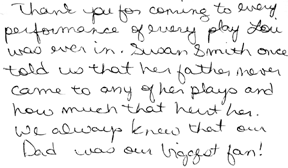 Thank you for coming to every
performance of every play Lou
was ever in. Susan Smith once
told us that her father never
came to any of her plays and
how much that hurt her.
We always knew that our
Dad was our biggest fan!